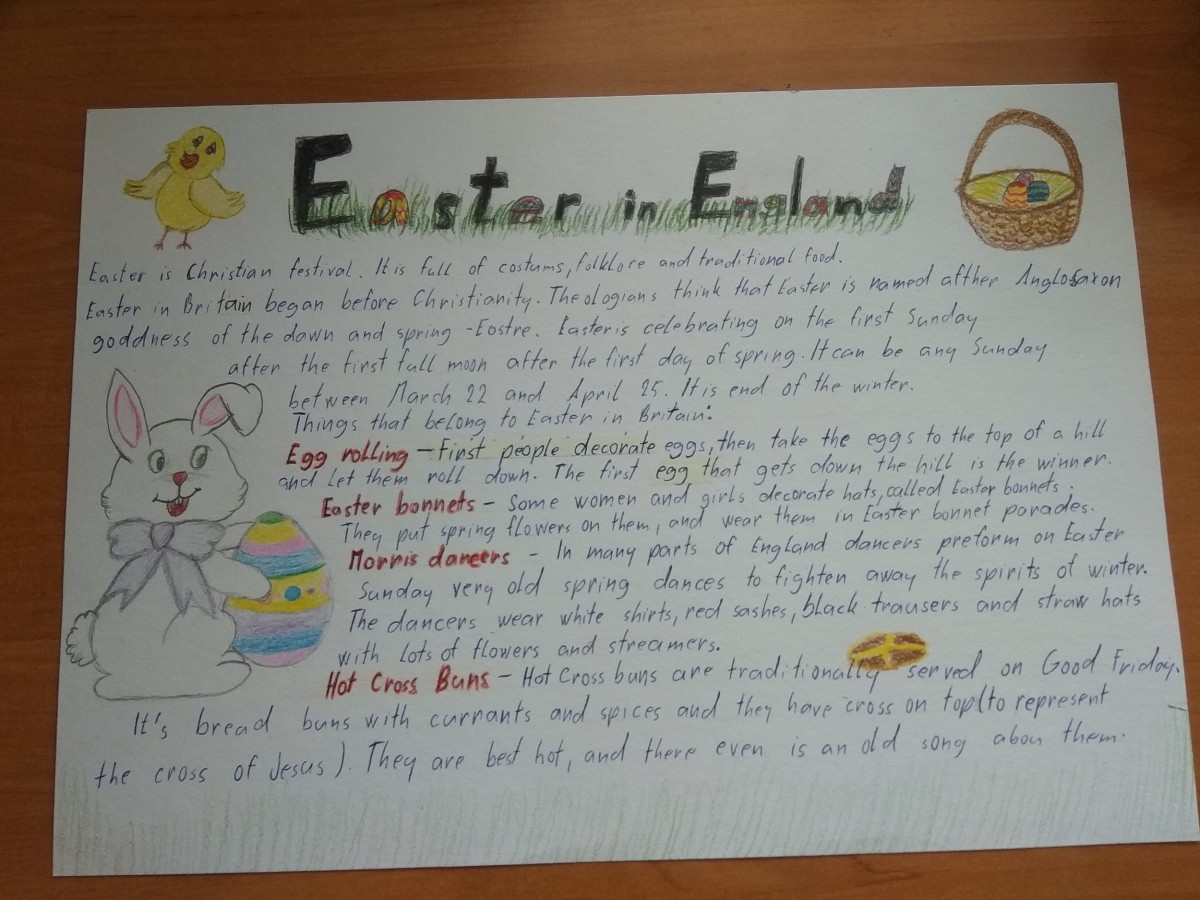 Easter in England
Easter is Christian festival. It is full of costums, folklore and traditional food.
Easter in Britain began before Christianity. Theologians think that Easter is named afther Anglosaxon
goddness of the dawn and spring - Eostre. Easter is celebrating on the first Sunday
after the first full moon after the first day of spring. It can be any Sunday
between March 22 and April 25. It is end of the winter.
Things that belong to Easter in Britain:
Egg rolling - First people decorate eggs, then take the eggs to the top of a hill
and let them roll down. The first egg that gets down the hill is the winner.
Easter bonnets - Some women and girls decorate hats, called Easter bonnets.
They put spring flowers on them, and wear them in Easter bonnet parades.
Morris dancers - In many parts of England dancers preform on Easter
Sunday very old spring dances to fighten away the spirits of winter.
The dancers wear white shirts, red sashes, black trausers and straw hats
with lots of flowers and streamers.
Hot Cross Buns - Hot Cross buns are traditionally served on Good Friday.
It's bread buns with currants and spices and they have cross on top (to represent
the cross of Jesus). They are best hot, and there even is an old song abou them.